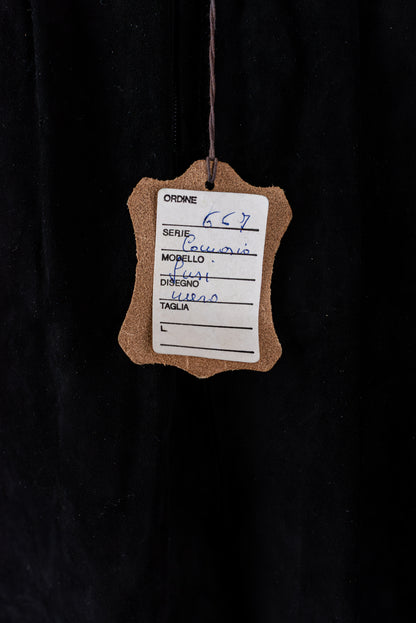 ORDINE 667
SERIE Camoscio
MODELLO Susi
DISEGNO nero
TAGLIA
L.